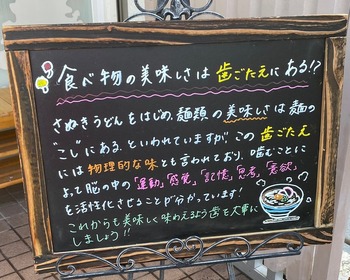 食べ物の美味しさは 歯ごたえ にある!?
さぬきうどんをはじめ、麺類の美味しさは麺の
"こし"にある、といわれていますが、この 歯ごたえ
には物理的な味とも言われており、噛むことに
よって脳の中の「運動」「感覚」「記憶」「思考」「意欲」
を活性化させることが分かっています!
これからも美味しく味わえるよう歯を大事に
しましょう!!